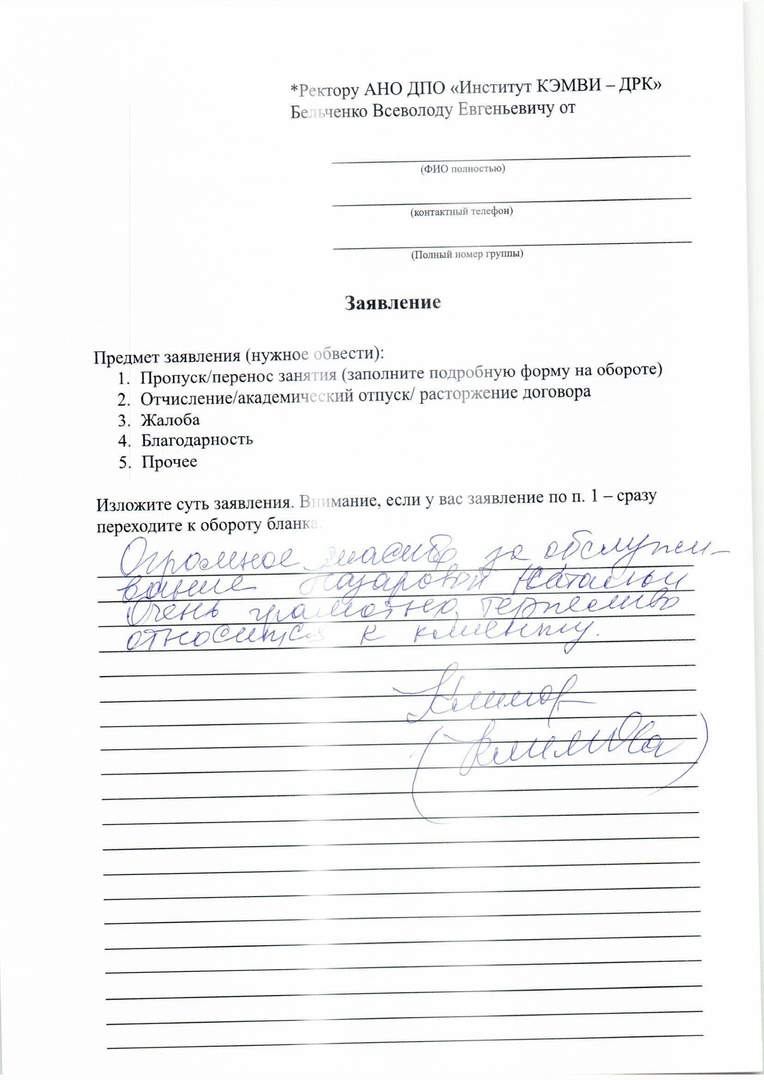 *Ректору АНО ДПО «Институт КЭМВИ – ДРК»
Бельченко Всеволоду Евгеньевичу от
(ФИО полностью)
(контактный телефон)
(Полный номер группы)
Заявление
Предмет заявления (нужное обвести):
1. Пропуск/перенос занятия (заполните подробную форму на обороте)
2. Отчисление/академический отпуск/ расторжение договора
3. Жалоба
4. Благодарность
5. Прочее
Изложите суть заявления. Внимание, если у вас заявление по п. 1 – сразу
переходите к обороту бланка.
Огромное спасибо за обслужи-
вание Назаровой Натальи
Очень грамотно, терпеливо
относится к клиенту.
Климов
(Климова)